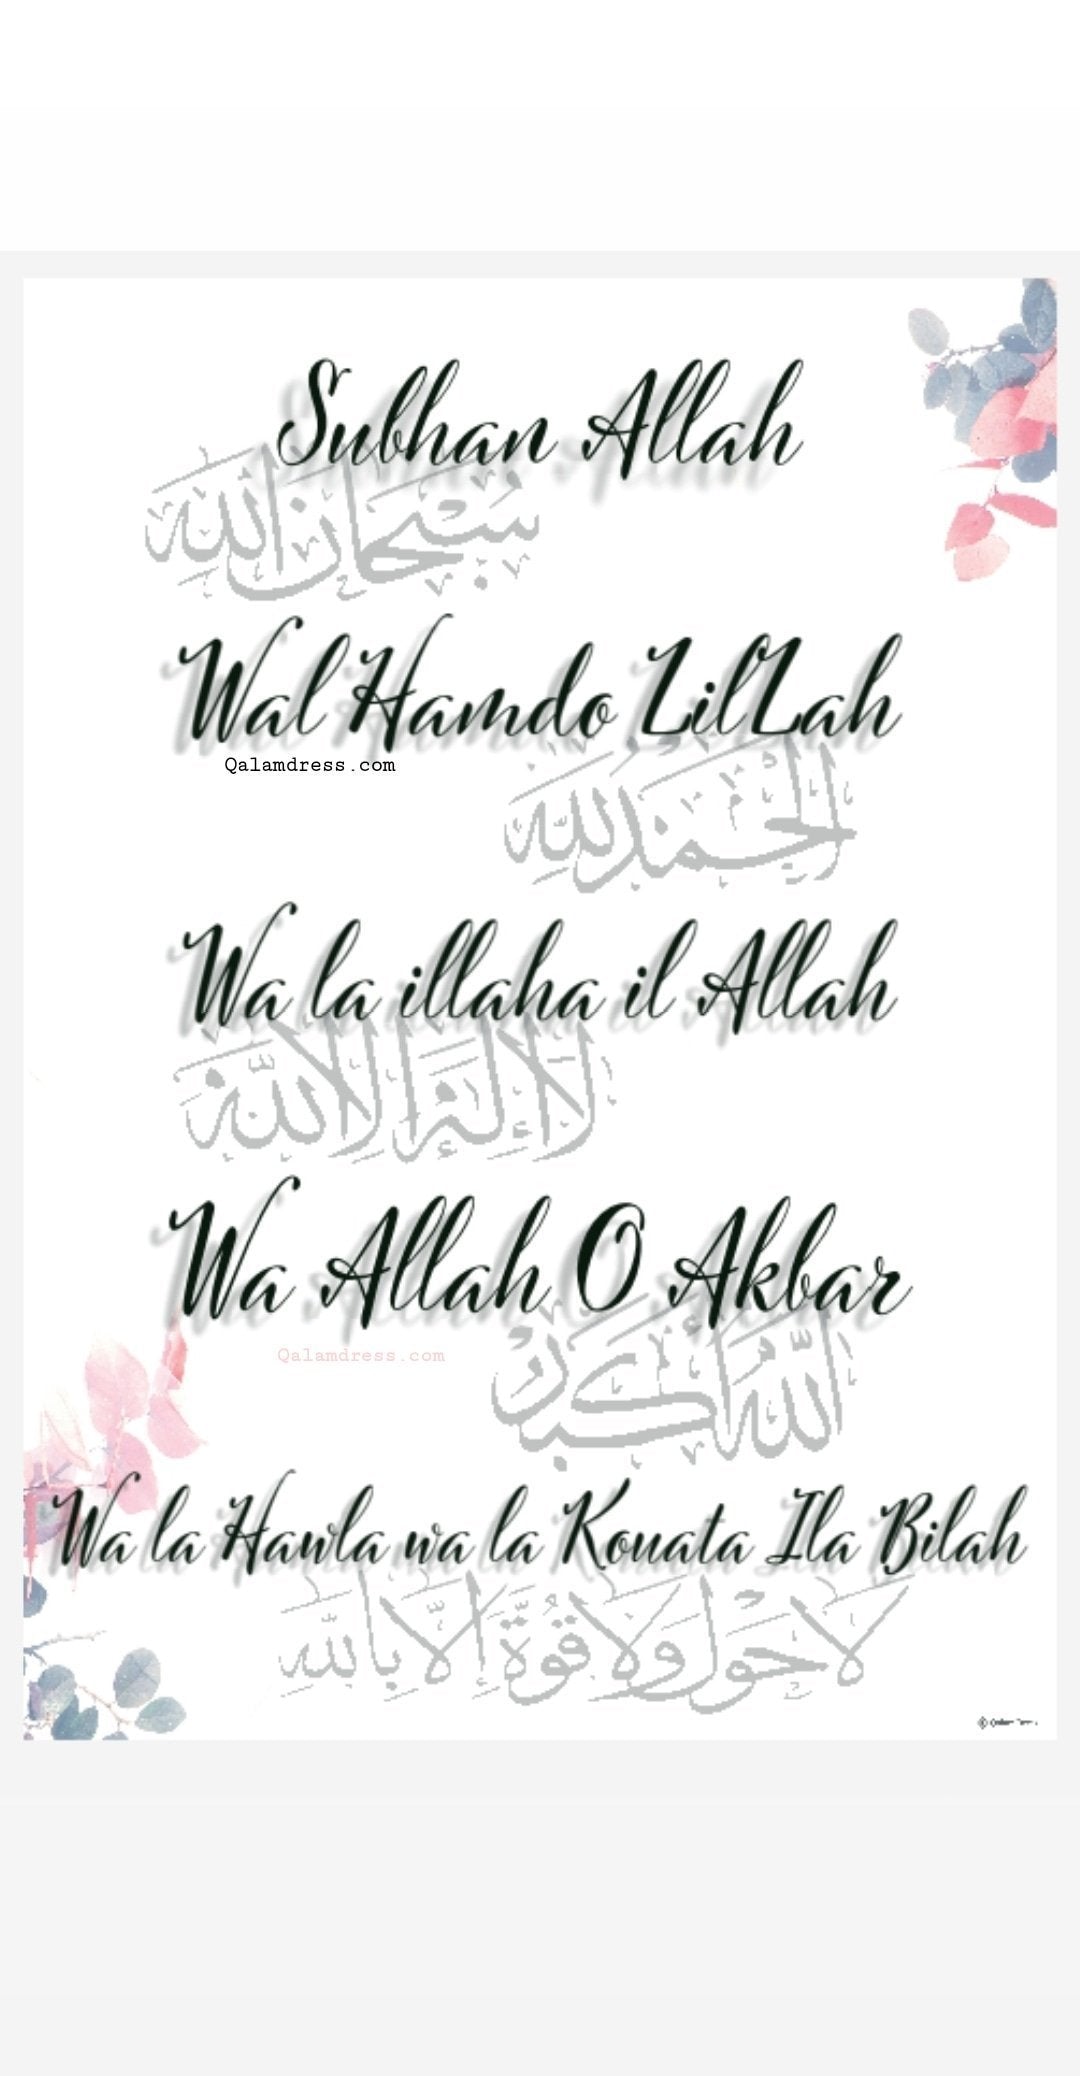 Subhan Allah
سُبْحَانَ اللَّه
Wal Hamdo LilLah
Qalamdress.com
الْحَمْدُ لِلَّه
Wa la illaha il Allah
لَا إِلٰهَ إِلَّا اللَّه
Wa Allah O Akbar
Qalamdress.com
اللَّهُ أَكْبَرْ
Wa la Hawla wa la Kouata Ila Bilah
لَا حَوْلَ وَلَا قُوَّةَ إِلَّا بِاللَّه